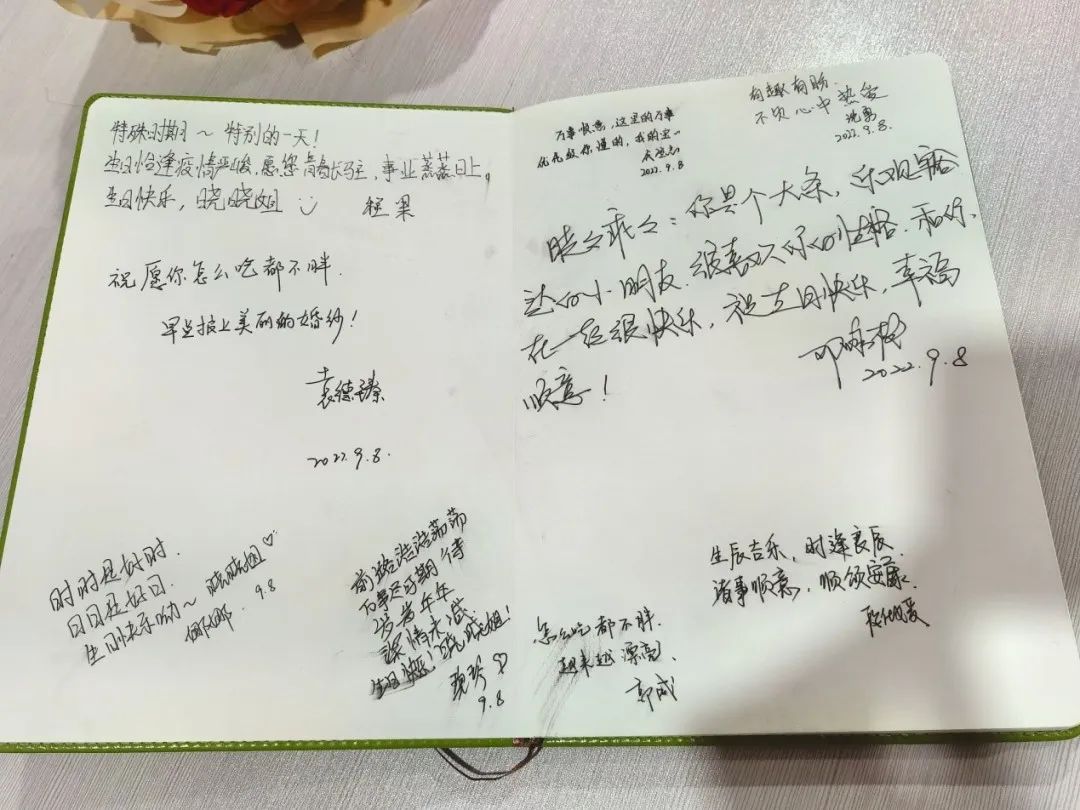 特殊时期～特别的一天！
生日恰逢疫情严峻，愿您青春永驻，事业蒸蒸日上。
生日快乐，晓晓姐
程果
祝愿你怎么吃都不胖.
早点披上美丽的婚纱！
袁德臻
2022.9.8.
时时是好时.
日日是好日.
生日快乐呦～晓晓姐♡
9.8
前路浩浩荡荡
万事尽可期待
岁岁年年
深情未减.
生日快乐！晓晓姐！
9.8
万事顺意，这里的万事
优先级你懂的，我的宝一
2022.9.8
有趣有盼.
不负心中热爱
2022.9.8.
晓晓乖乖：你是个大条，乐观豁
达的小朋友.很喜欢你的性格.和你
在一起很快乐，祝生日快乐，幸福
顺意！
2022.9.8
怎么吃都不胖.
越来越漂亮.
郭成
生辰吉乐，时逢良辰.
诸事顺意，顺颂安康.